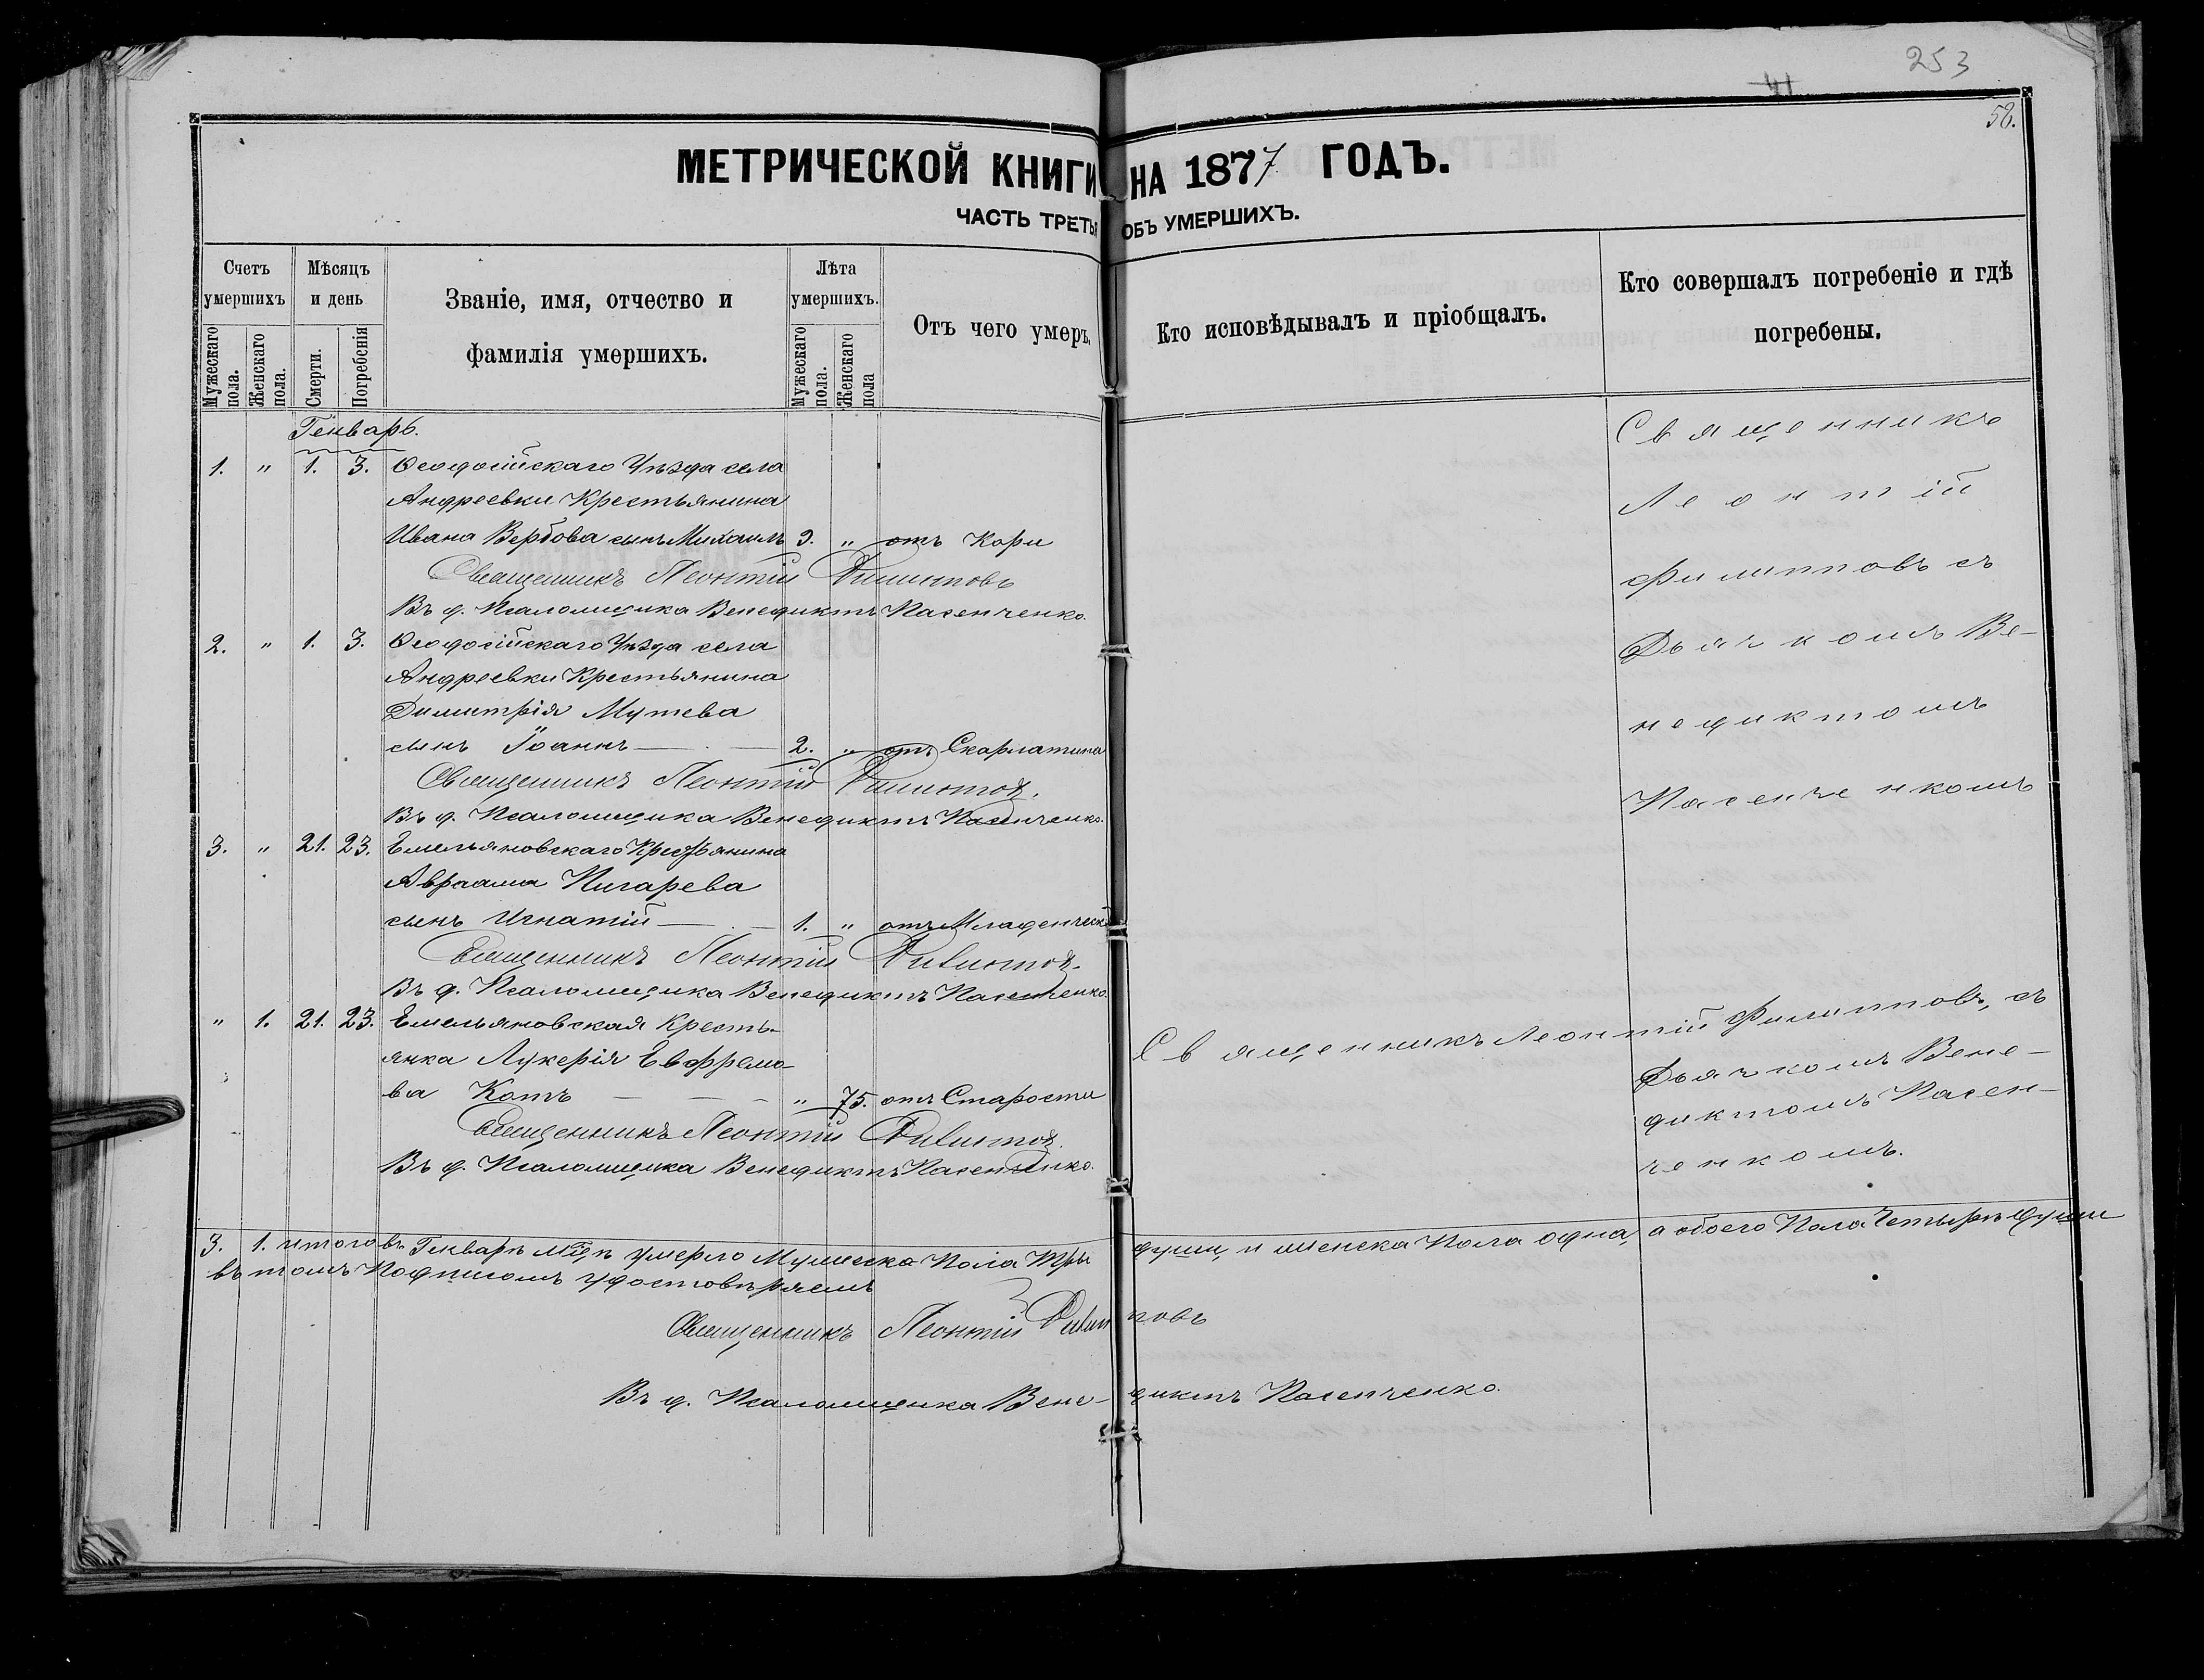 253
41
58.
МЕТРИЧЕСКОЙ КНИГИ НА 1877 ГОДЪ.
ЧАСТЬ ТРЕТЬЯ ОБЪ УМЕРШИХЪ.
Счетъ умершихъ
Мужескаго пола.
Женскаго пола.
Мѣсяцъ и день
Смерти.
Погребенія
Званіе, имя, отчество и фамилія умершихъ.
Лѣта умершихъ.
Мужескаго пола.
Женскаго пола
Отъ чего умеръ.
Кто исповѣдывалъ и пріобщалъ.
Кто совершалъ погребеніе и гдѣ погребены.
Генварь.
1. " 1. 3. Ѳеодосійскаго Уѣзда села
Андреевки Крестьянина
Ивана Вербова сынъ Михаилъ 9. " отъ Кори
Священникъ Леонтій Филиповъ
Въ д. Псаломщика Венедиктъ Пасенченко.
2. " 1. 3. Ѳеодосійскаго Уѣзда села
Андреевки Крестьянина
Димитрія Мутева
сынъ Іоаннъ 2. " отъ Скарлатина
Священникъ Леонтій Филиповъ.
Въ д. Псаломщика Венедиктъ Пасенченко.
Священникъ
Леонтій
Филипповъ съ
Дьячкомъ Ве-
недиктомъ
Пасенченкомъ
3. " 21. 23. Емельяновскаго Крестьянина
Авраама Пигарева
сынъ Игнатій 1. " отъ Младенческ
Священникъ Леонтій Филиповъ.
Въ д. Псаломщика Венедиктъ Пасенченко.
" 1. 21. 23. Емельяновская Кресть-
янка Лукерія Евфремо-
ва Котъ " 75. отъ Старости
Священникъ Леонтій Филиповъ.
Въ д. Псаломщика Венедиктъ Пасенченко.
Священникъ Леонтій Филипповъ, съ
Дьячкомъ Вене-
диктомъ Пасен-
ченкомъ.
3. 1. итого въ Генварѣ м̃цѣ умерло Мужеска Пола Три души, и женска Пола одна, а обоего Пола Четырѣ души
въ томъ Подписомъ удостовѣряемъ
Священникъ Леонтій Филиповъ
Въ д. Псаломщика Венедиктъ Пасенченко.